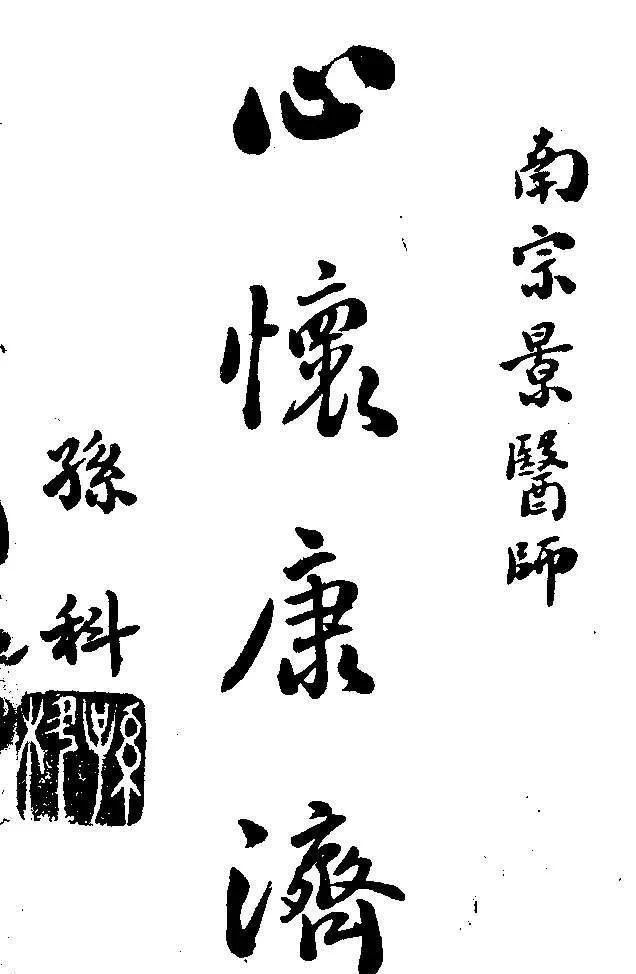 南宗景醫師
心懷康濟
孫科